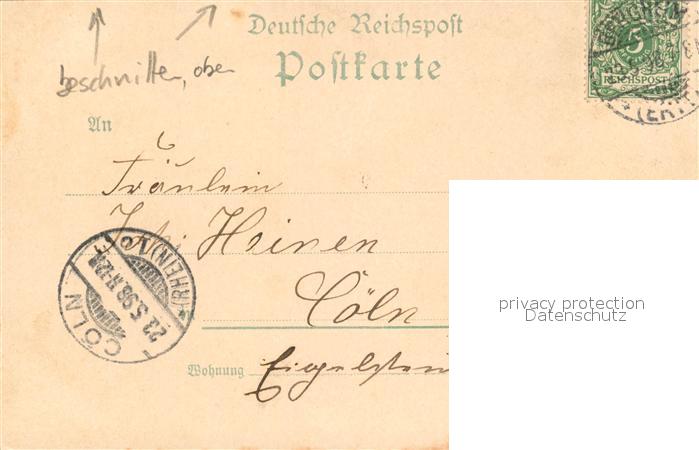 Deutsche Reichspost
Postkarte
beschnitten, oben
5
REICHSPOST
An
Fräulein
Heinen
Cöln
Wohnung Eigelstein
CÖLN
(RHEIN)
23.5.98
privacy protection
Datenschutz